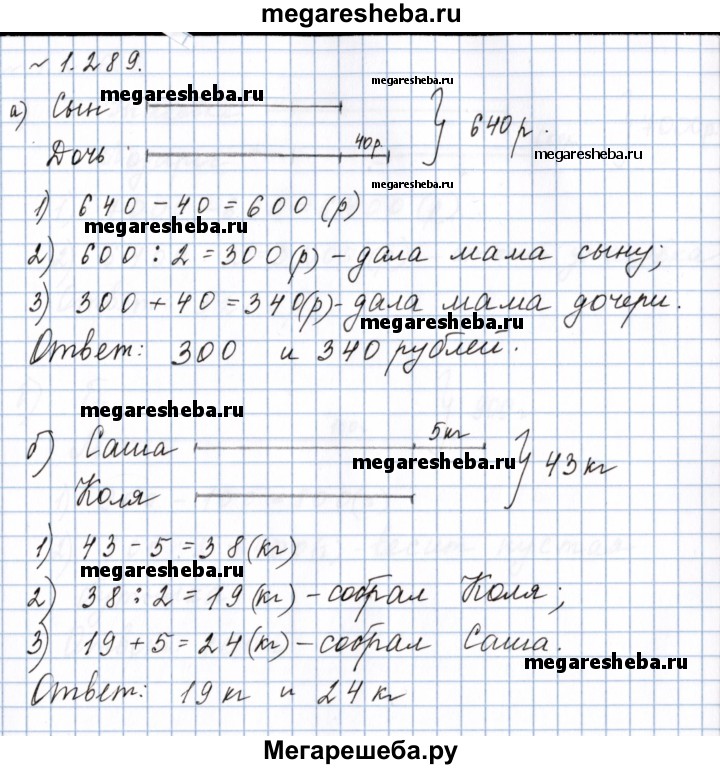 megaresheba.ru
~ 1.289.
megaresheba.ru
а) Сын
megaresheba.ru
640 р.
Дочь 40р.
megaresheba.ru
megaresheba.ru
1) 640 - 40 = 600 (р)
megaresheba.ru
2) 600 : 2 = 300 (р) - дала мама сыну;
3) 300 + 40 = 340(р) - дала мама дочери.
megaresheba.ru
Ответ: 300 и 340 рублей.
megaresheba.ru
б) Саша 5кг
megaresheba.ru
43 кг
Коля
1) 43 - 5 = 38 (кг)
megaresheba.ru
2) 38 : 2 = 19 (кг) - собрал Коля;
3) 19 + 5 = 24 (кг) - собрал Саша.
megaresheba.ru
Ответ: 19 кг и 24 кг
Мегарешеба.ру